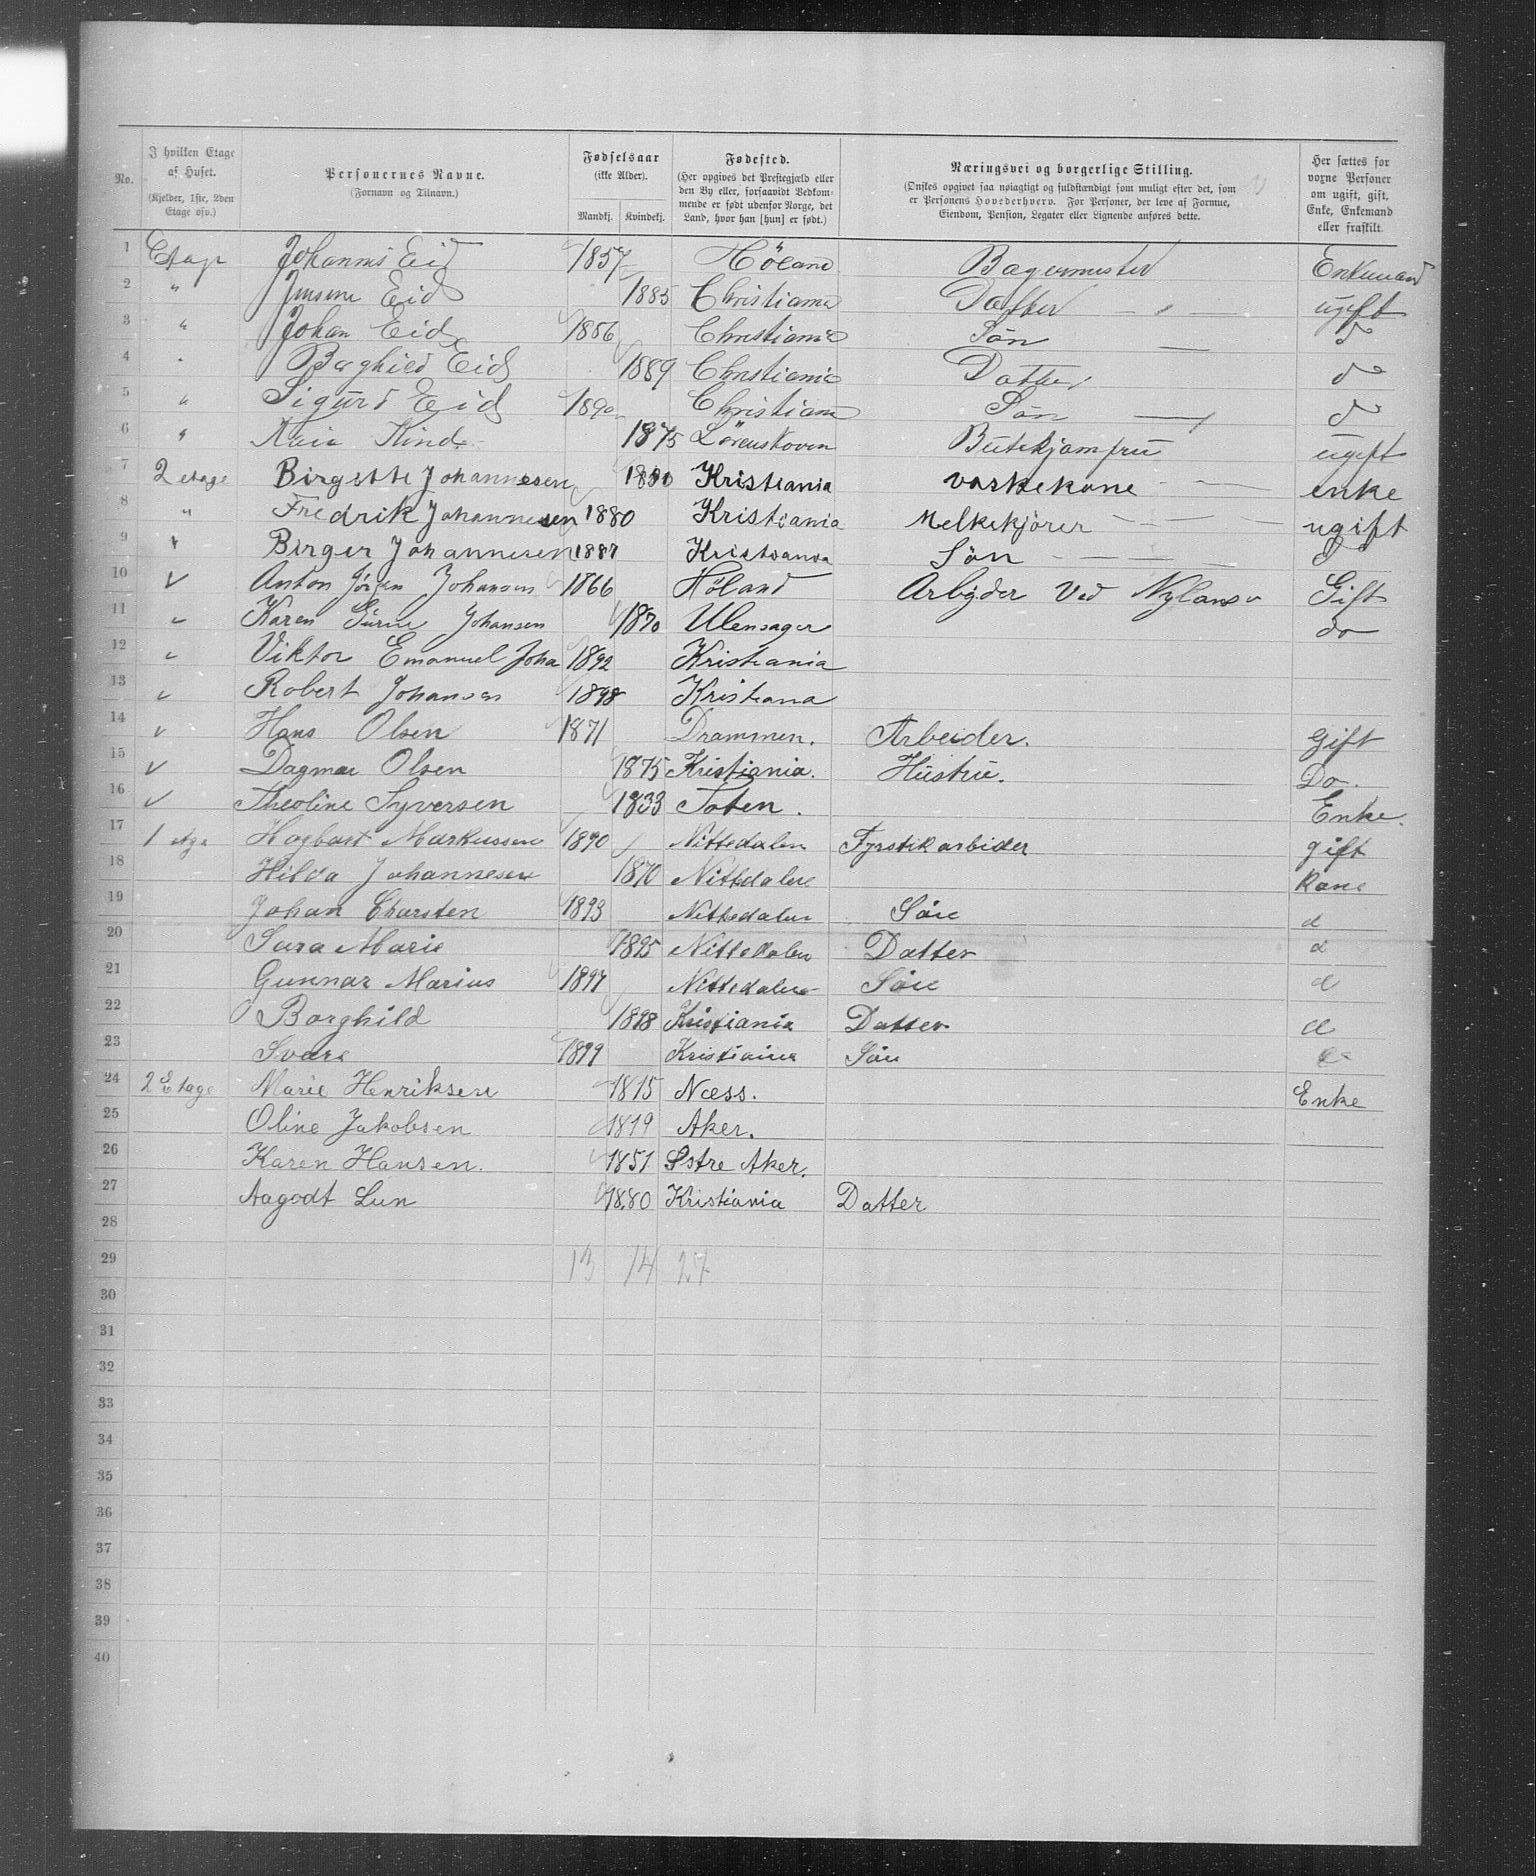 No. I hvilken Etage af Huset. (Kjelder, 1ste, 2den Etage osv.) Personernes Navne. (Fornavn og Tilnavn.) Fødselsaar (ikke Alder). Mandkj. Kvindekj. Fødested. (Her opgives det Prestegjæld eller den By eller, forsaavidt Vedkommende er født udenfor Norge, det Land, hvor han [hun] er født.) Næringsvei og borgerlige Stilling. (Ønskes opgivet saa nøiagtigt og fuldstændigt som muligt efter det, som er Personens Hovederhverv. For Personer, der leve af Formue, Eiendom, Pension, Legater eller Lignende anføres dette. Her sættes for voxne Personer om ugift, gift, Enke, Enkemand eller fraskilt.
1 Etage Johannes Eid 1857 Höland Bagermester Enkemand
2 " Eid 1885 Christiania Datter — ugift
3 " Johan Eid 1886 Christiania Sön — d
4 Borghild Eid 1889 Christiania Datter do
5 " Sigurd Eid 1890 Christiania Sön — do
6 " 1875 Lörenskoven Butikjomfru ugift
7 2 etage Birgitte Johannesen Kristiania vaskekone — enke
8 " Fredrik Johannesen 1880 Kristiania Melkekjörer — ugift
9 " Birger Johannesen 1887 Kristiania Sön — do
10 Anton Jörgen Johansen 1866 Höland Arbejder ved Nylands Gift
11 Karen Johansen 1870 Ulensager do
12 Viktor Emanuel Joha 1892 Kristiania
13 Robert Johansen 1898 Kristiana
14 Hans Olsen 1871 Drammen. Arbeider. Gift
15 Dagmar Olsen 1875 Kristiania. Hustru. Do.
16 Theoline Syversen 1833 Toten. Enke.
17 1 Markussen Nittedalen Fyrstikarbider gift
18 Hilda Johannesen 1870 Nittedalen kone
19 Johan Charsten 1893 Nittedalen Sön d
20 Sara Marie 1895 Nittedalen Datter d
21 Gunnar Marius 1897 Nittedalen Sön d
22 Borghild 1898 Kristiania Datter d
23 1899 Kristiania Sön
24 2 Etage Marie Henriksen 1815 Næss. Enke
25 Oline Jakobsen 1819 Aker.
26 Karen Hansen. 1851 Østre Aker.
27 Aagodt Lun 1880 Kristiania Datter
28
29 13 14 27
30
31
32
33
34
35
36
37
38
39
40